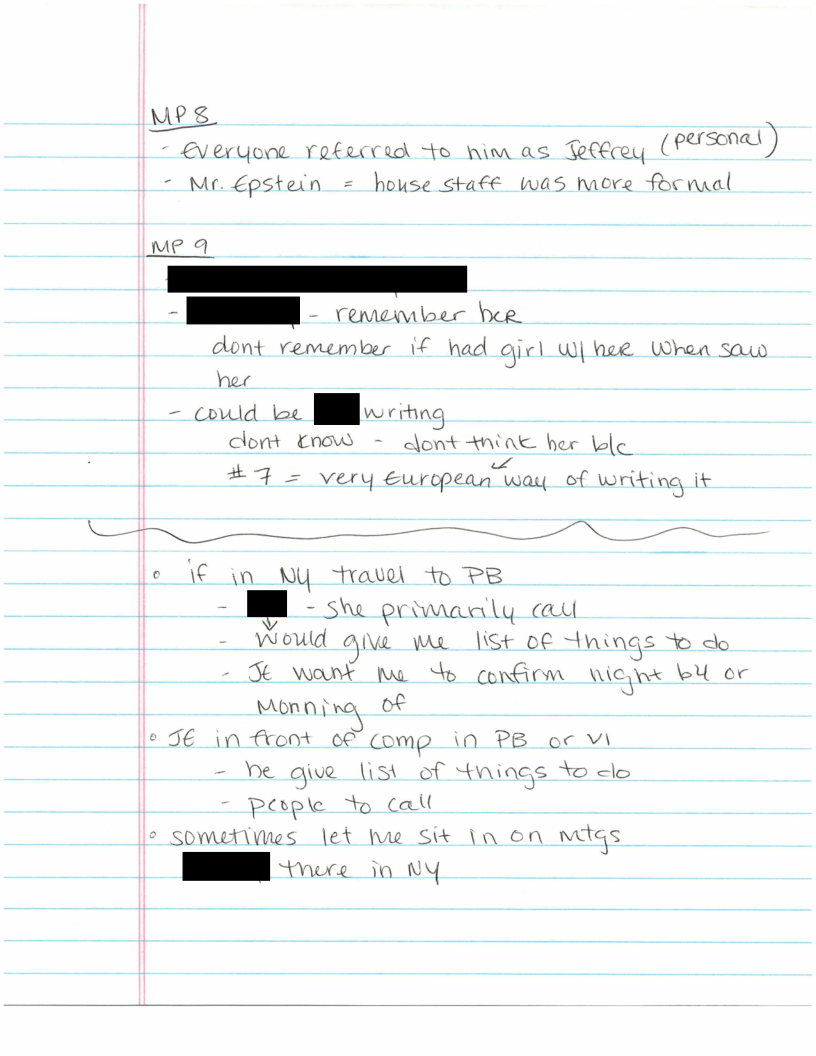 MP 8
- Everyone referred to him as Jeffrey (personal)
- Mr. Epstein = house staff was more formal
MP 9
-
- - remember her
dont remember if had girl w/ her when saw
her
- could be writing
dont know - dont think her b/c
# 7 = very European way of writing it
◦ if in NY travel to PB
- - she primarily call
- would give me list of things to do
- JE want me to confirm night b4 or
monning of
◦ JE in front of comp in PB or VI
- he give list of things to do
- people to call
◦ sometimes let me sit in on mtgs
there in NY